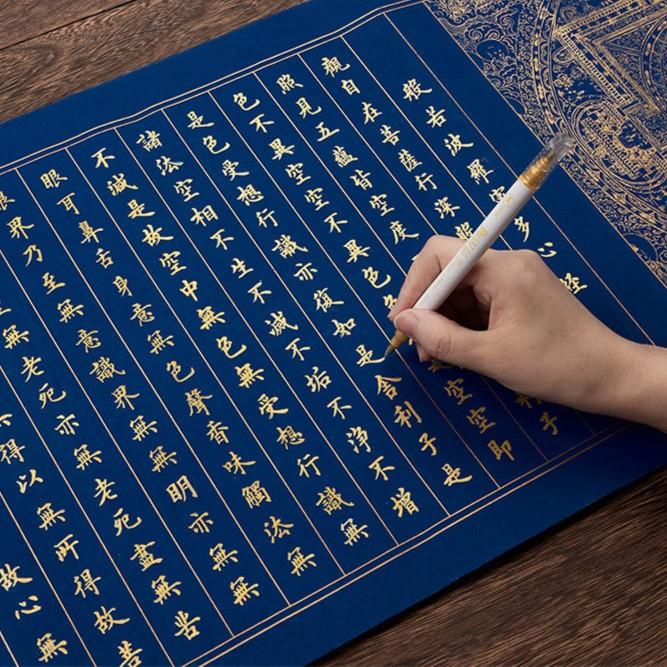 般若波羅多心經
觀自在菩薩行深子
照見五蘊皆空度是空空即
色不異空空不異色色
是色受想行識亦復如是舍利子是
諸法空相不生不滅不垢不淨不增
不滅是故空中無色無受想行識無
眼耳鼻舌身意無色聲香味觸法無
眼界乃至無意識界無無明亦無無
無老死亦無老死盡無苦
得以無所得故菩
故心無